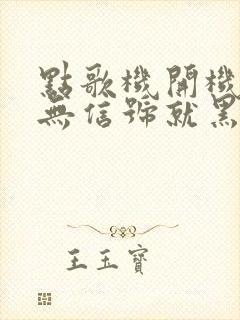 點歌機開機
無信號就黑
王玉寶